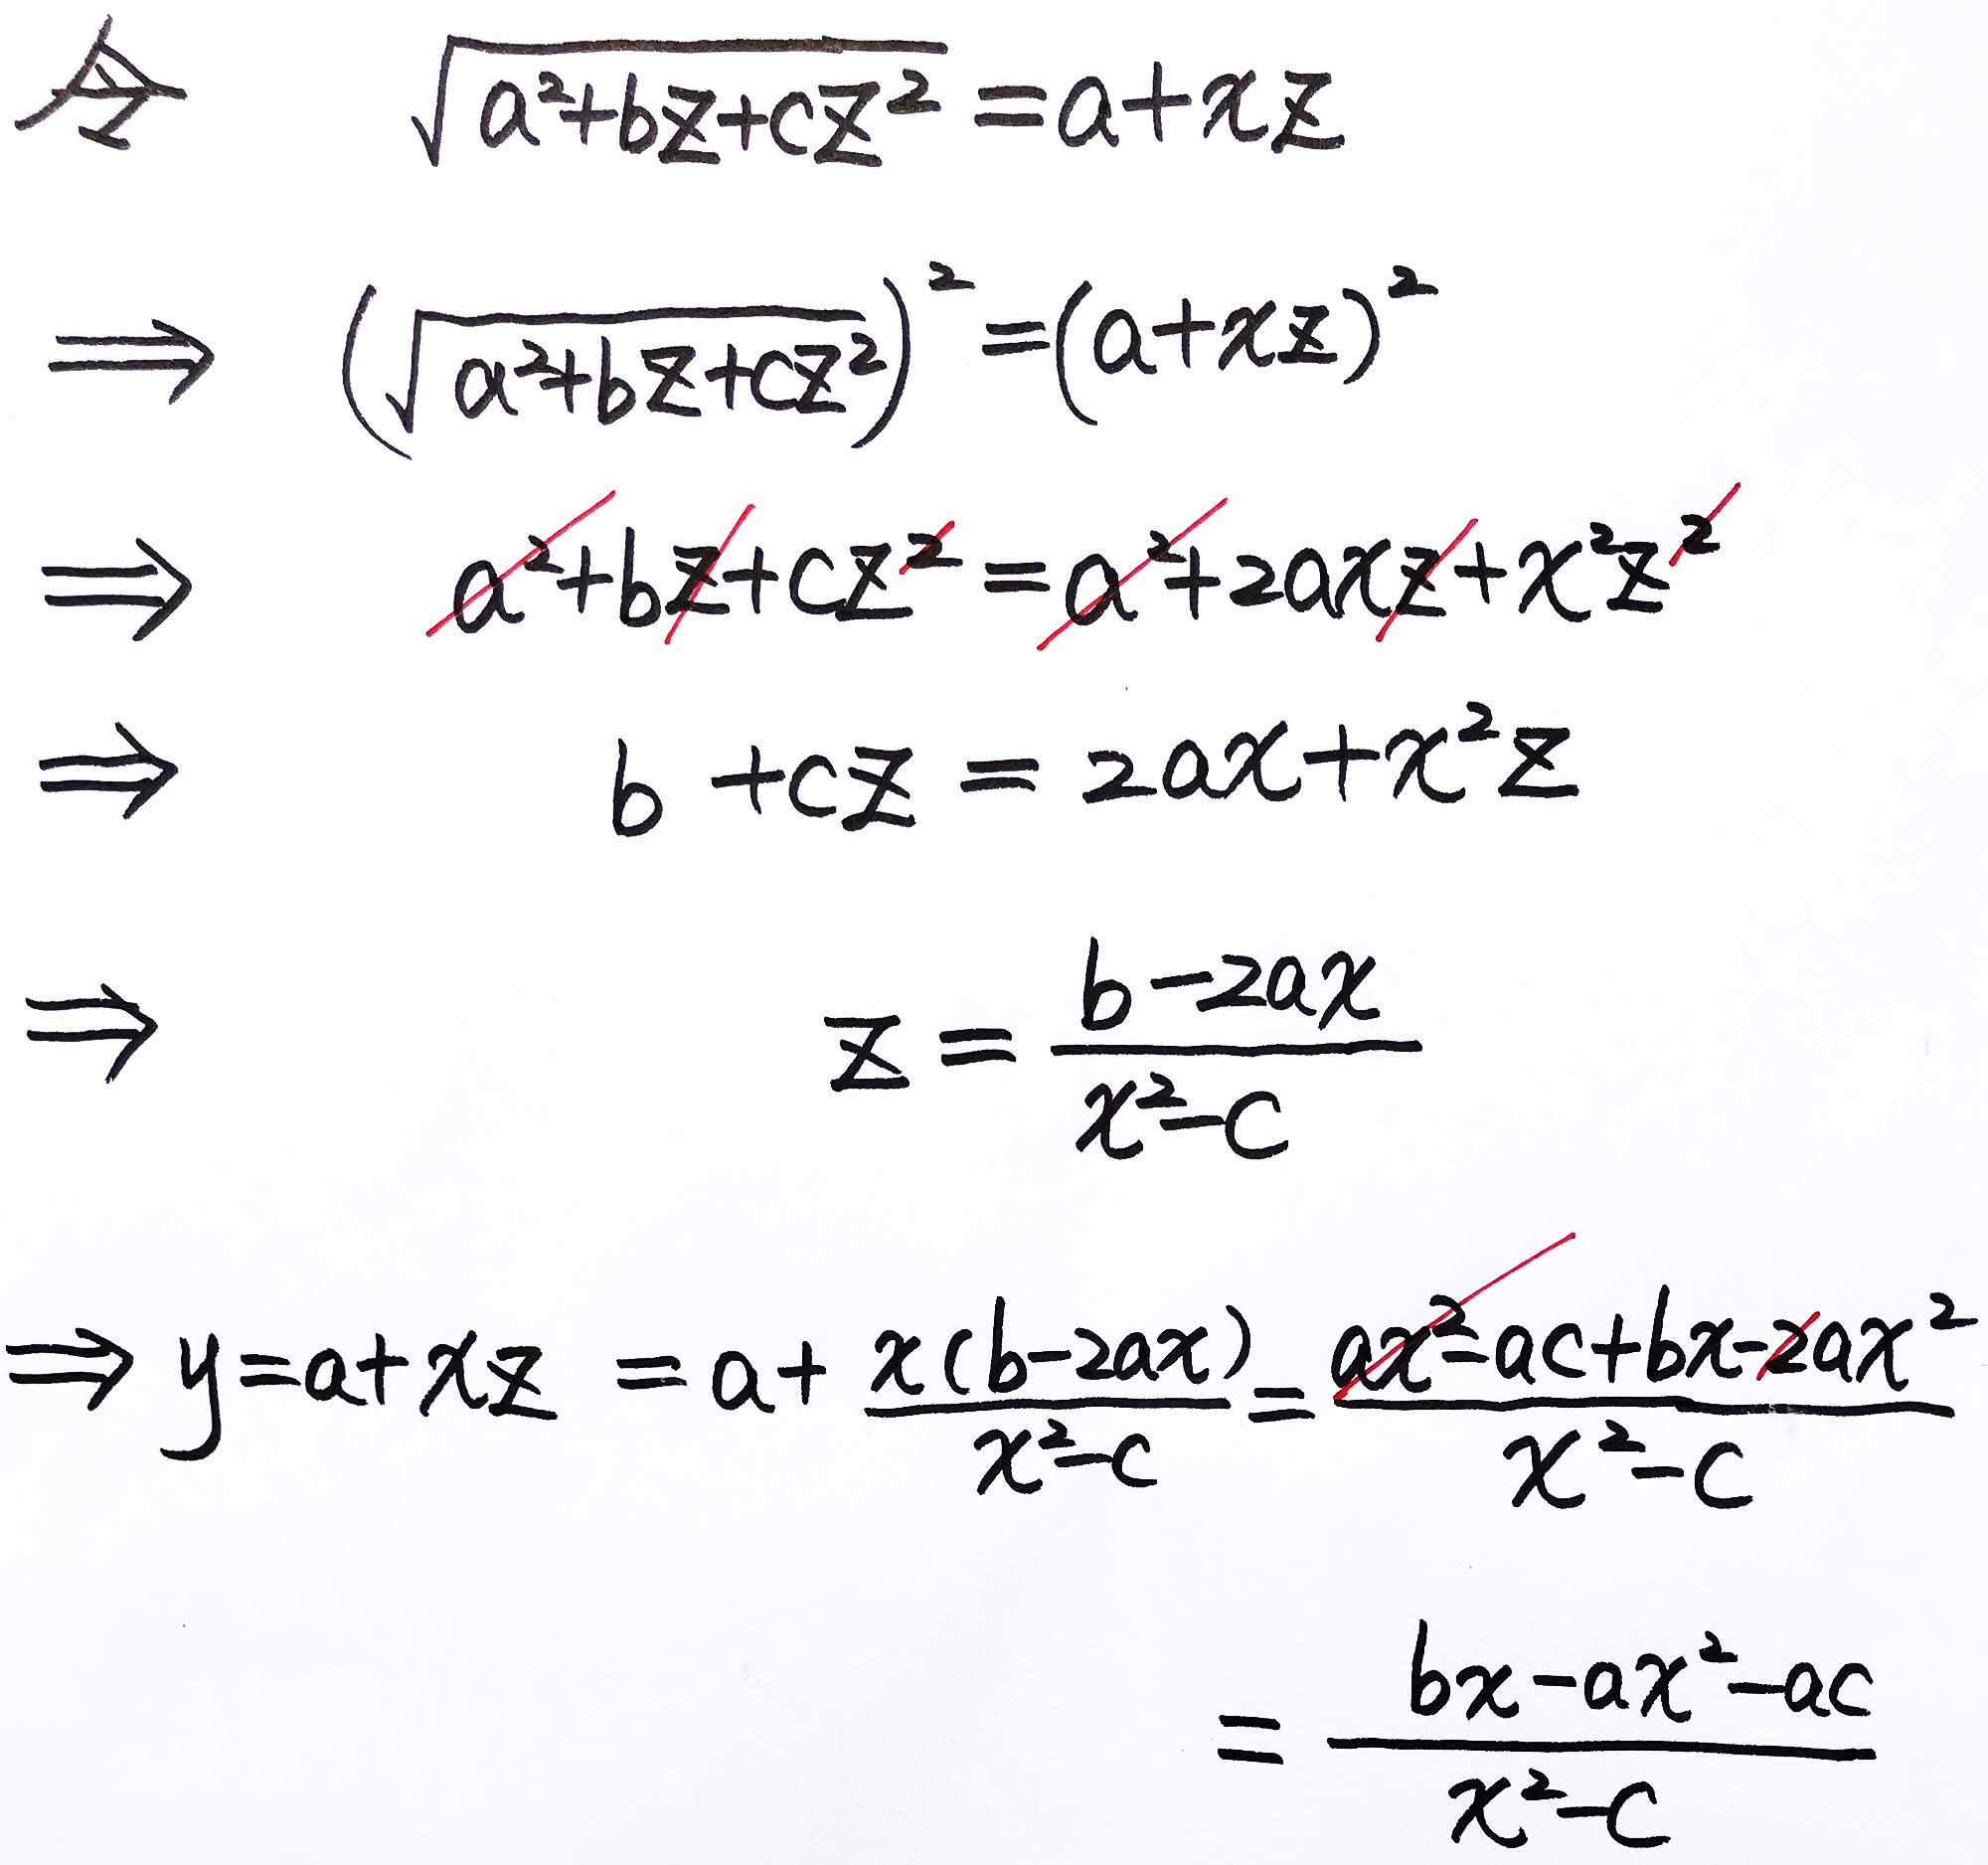 令 √(a²+bz+cz²) = a+xz
⇒ (√(a²+bz+cz²))² = (a+xz)²
⇒ a²+bz+cz² = a²+2axz+x²z²
⇒ b+cz = 2ax+x²z
⇒ z = (b-2ax)/(x²-c)
⇒ y=a+xz = a+ x(b-2ax)/(x²-c) = (ax²-ac+bx-2ax²)/(x²-c)
= (bx-ax²-ac)/(x²-c)